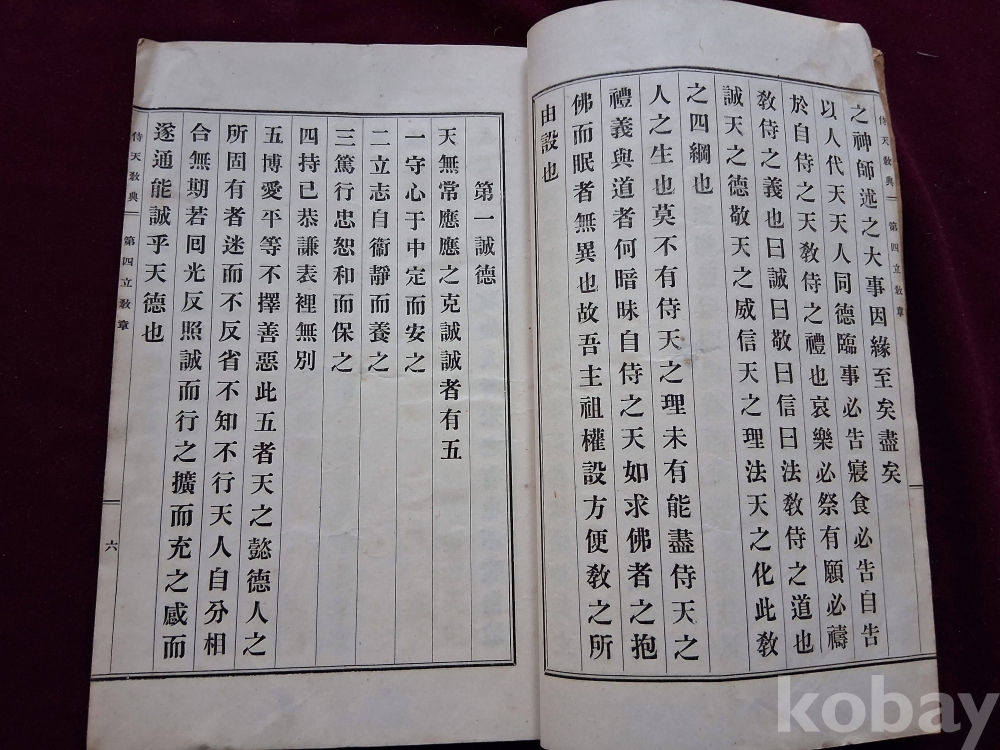 侍天敎典 第四立敎章
之神師述之大事因緣至矣盡矣
以人代天天人同德臨事必告寢食必告自告
於自侍之天敎侍之禮也哀樂必祭有願必禱
敎侍之義也曰誠曰敬曰信曰法敎侍之道也
誠天之德敬天之威信天之理法天之化此敎
之四綱也
人之生也莫不有侍天之理未有能盡侍天之
禮義與道者何暗昧自侍之天如求佛者之抱
佛而眠者無異也故吾主祖權設方便敎之所
由設也
第一誠德
天無常應應之克誠誠者有五
一守心于中定而安之
二立志自衞靜而養之
三篤行忠恕和而保之
四持己恭謙表裡無別
五博愛平等不擇善惡此五者天之懿德人之
所固有者迷而不反省不知不行天人自分相
合無期若回光反照誠而行之擴而充之感而
遂通能誠乎天德也
侍天敎典 第四立敎章 六
kobay